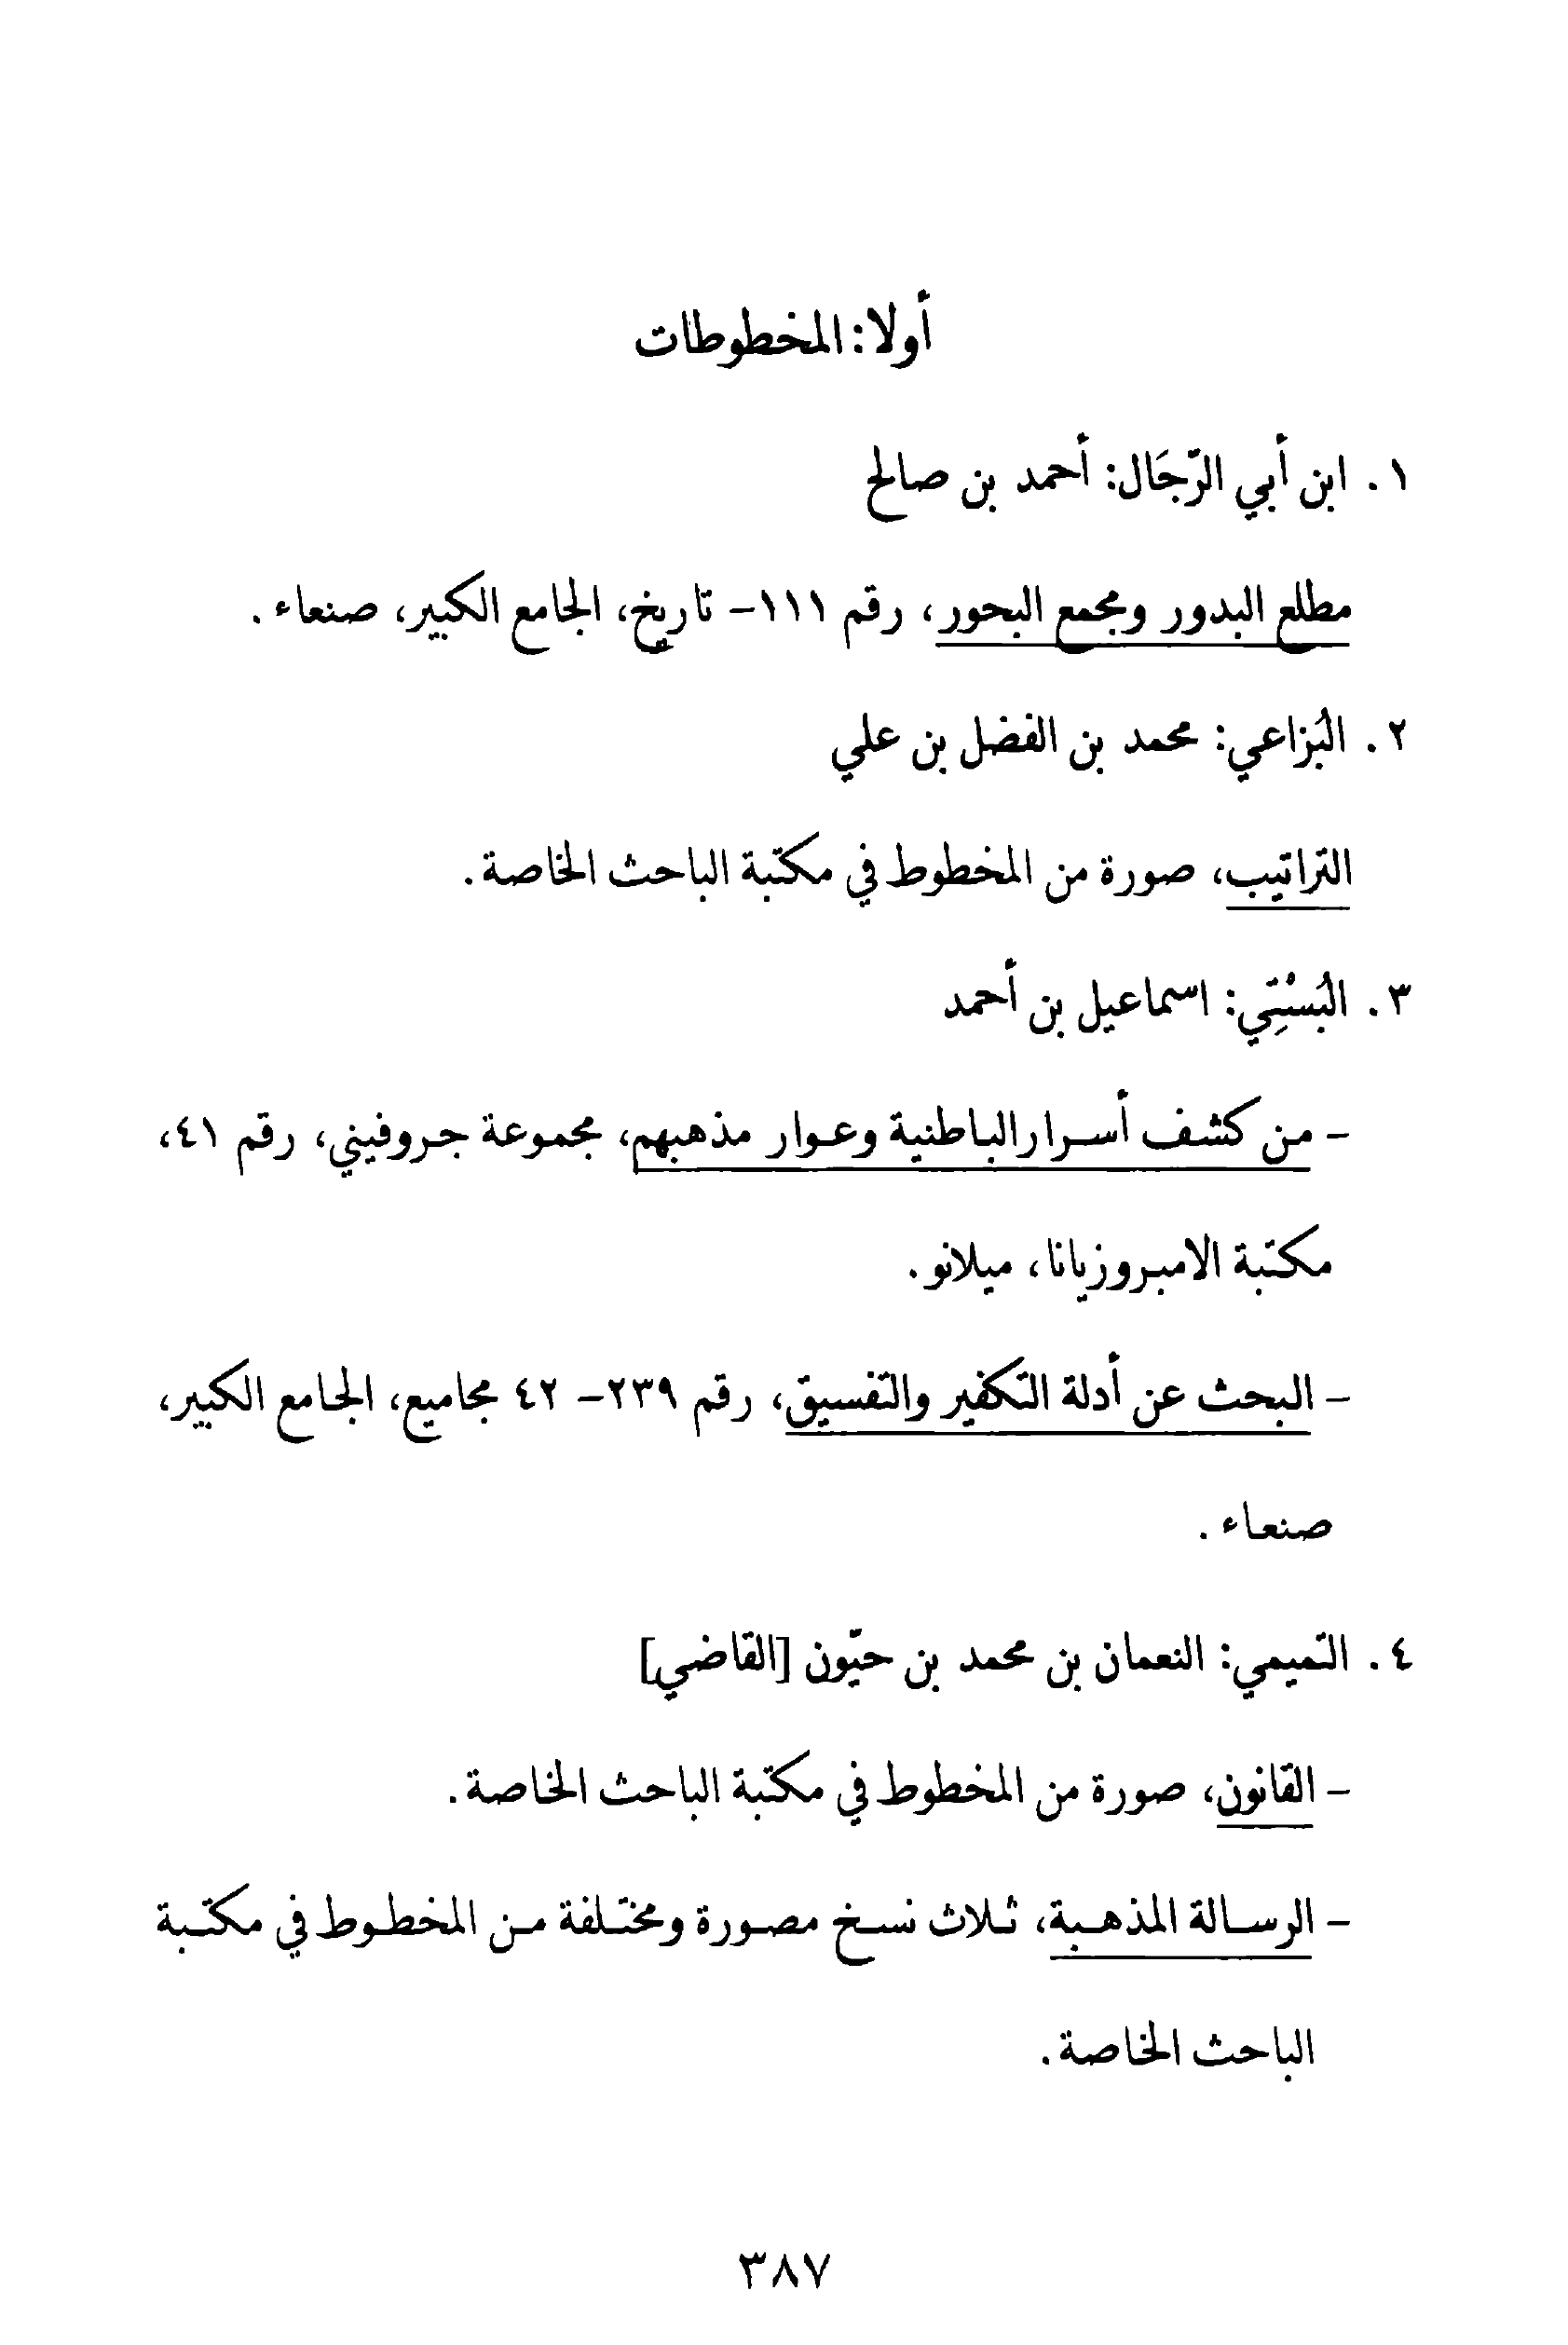 أولا: المخطوطات
١. ابن أبي الرّجَال: أحمد بن صالح
مطلع البدور ومجمع البحور، رقم ١١١- تاريخ، الجامع الكبير، صنعاء.
٢. البُزاعي: محمد بن الفضل بن علي
التراتيب، صورة من المخطوط في مكتبة الباحث الخاصة.
٣. البُسْتِي: اسماعيل بن أحمد
- من كشف أسرار الباطنية وعوار مذهبهم، مجموعة جروفيني، رقم ٤١،
مكتبة الامبروزيانا، ميلانو.
- البحث عن أدلة التكفير والتفسيق، رقم ٢٣٩- ٤٢ مجاميع، الجامع الكبير،
صنعاء.
٤. التميمي: النعمان بن محمد بن حيّون [القاضي]
- القانون، صورة من المخطوط في مكتبة الباحث الخاصة.
- الرسالة المذهبة، ثلاث نسخ مصورة ومختلفة من المخطوط في مكتبة
الباحث الخاصة.
٣٨٧